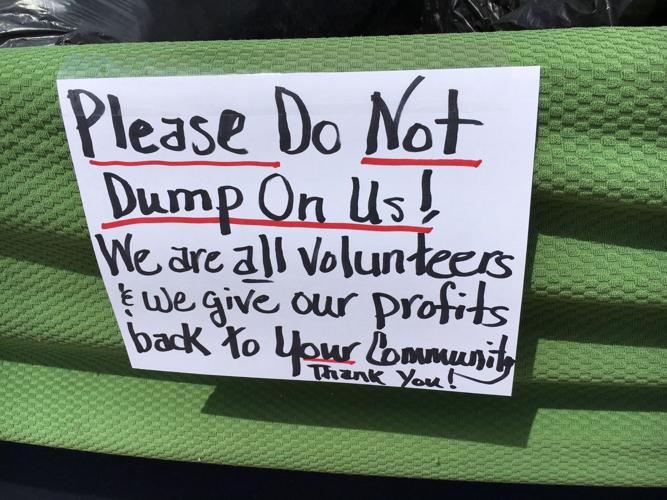 Please Do Not
Dump On Us!
We are all volunteers
& we give our profits
back to Your Community
Thank You!